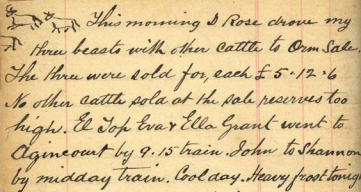 This morning D Rose drove my
three beasts with other cattle to Orm Sale.
The three were sold for, each £5-12-6
No other cattle sold at the sale reserves too
high. El Top Eva & Ella Grant went to
Agincourt by 9.15 train. John to Shannon
by midday train. Cool day. Heavy frost tonig